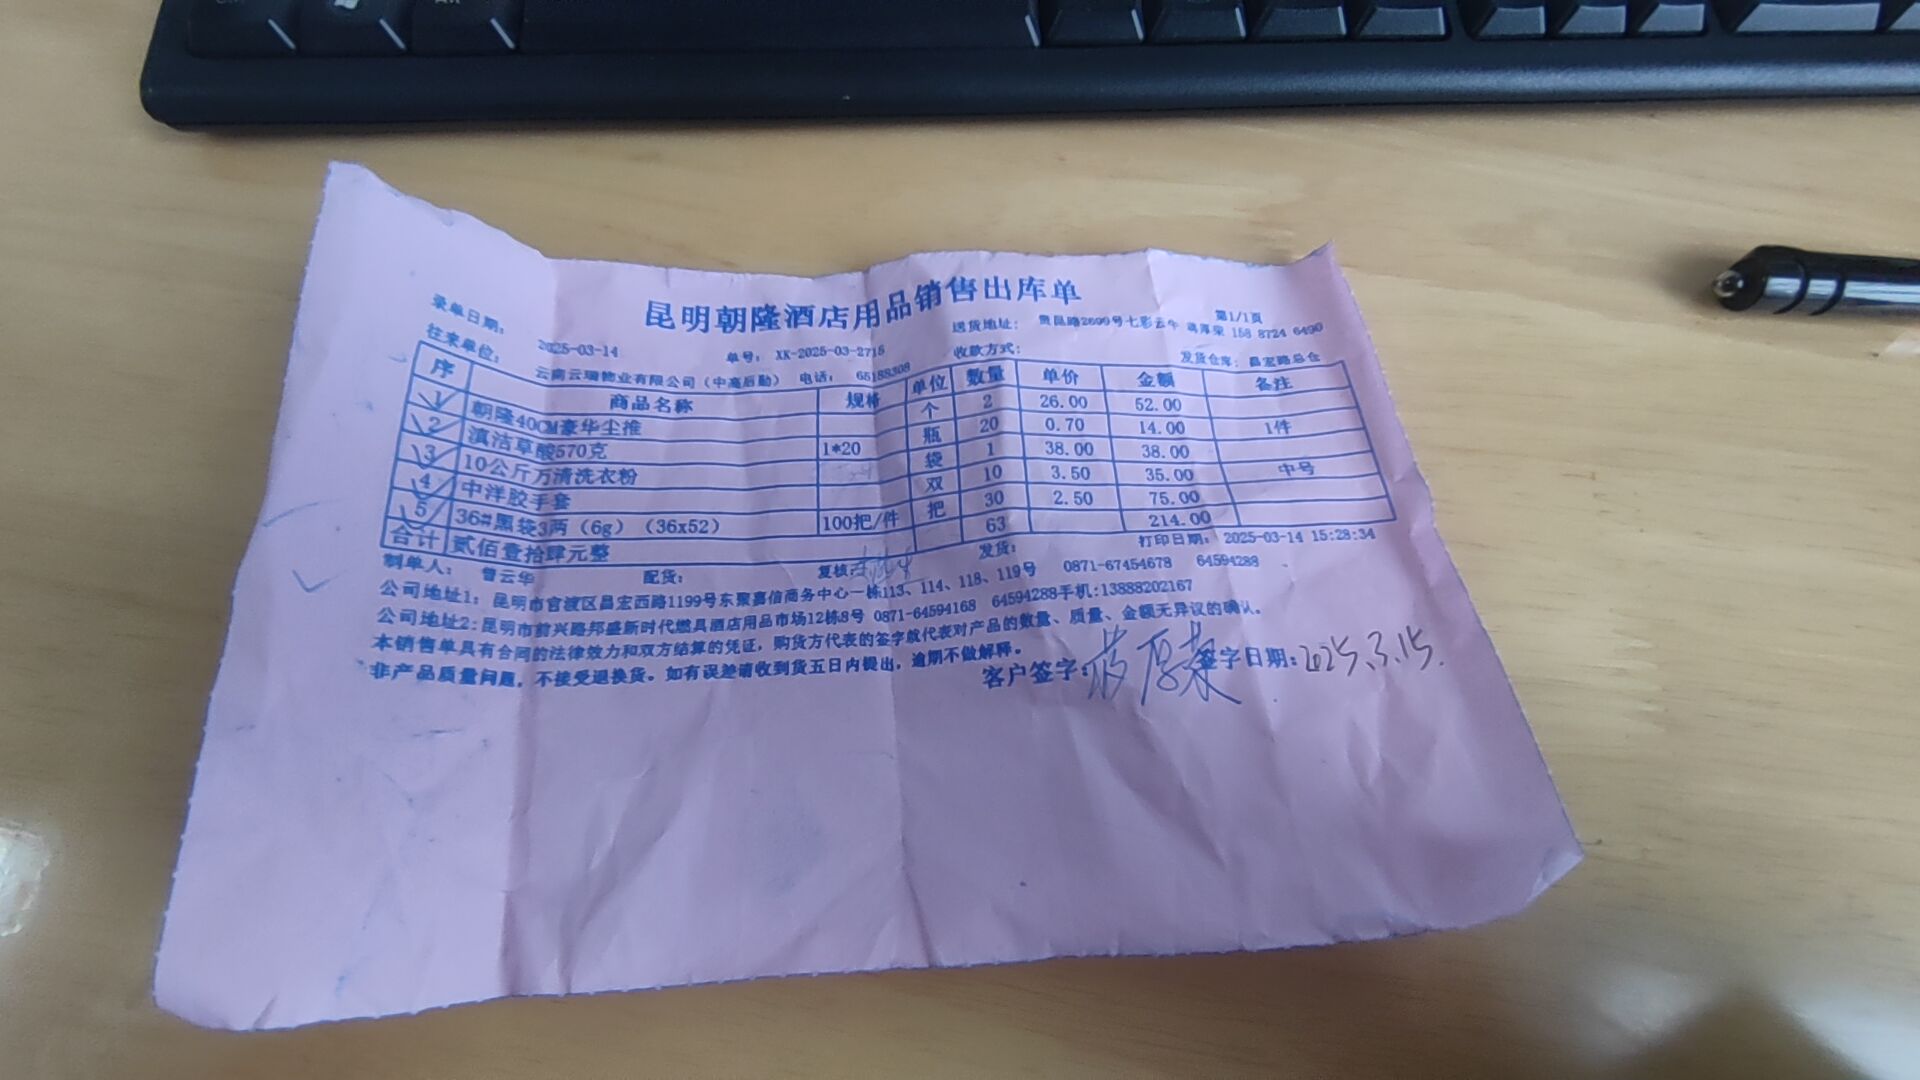 昆明朝隆酒店用品销售出库单
第1/1页
录单日期: 2025-03-14 单号: XK-2025-03-2715 送货地址: 贵昆路2699号七彩云牛 蒋厚荣 158 8724 6490
往来单位: 云南云瑞物业有限公司(中高后勤) 电话: 65188308 收款方式: 发货仓库: 昌宏路总仓
序 商品名称 规格 单位 数量 单价 金额 备注
1 朝隆40CM豪华尘推 个 2 26.00 52.00
2 滇洁草酸570克 1*20 瓶 20 0.70 14.00 1件
3 10公斤万清洗衣粉 袋 1 38.00 38.00
4 中洋胶手套 双 10 3.50 35.00 中号
5 36#黑袋3两(6g)(36x52) 100把/件 把 30 2.50 75.00
合计 贰佰壹拾肆元整 63 214.00
制单人: 曾云华 配货: 复核: 发货: 打印日期: 2025-03-14 15:28:34
公司地址1: 昆明市官渡区昌宏西路1199号东聚嘉信商务中心一栋113、114、118、119号 0871-67454678 64594288
公司地址2:昆明市前兴路邦盛新时代燃具酒店用品市场12栋8号 0871-64594168 64594288手机:13888202167
本销售单具有合同的法律效力和双方结算的凭证,购货方代表的签字就代表对产品的数量、质量、金额无异议的确认。
非产品质量问题,不接受退换货。如有误差请收到货五日内提出,逾期不做解释。
客户签字:蒋厚荣 签字日期:2025.3.15.